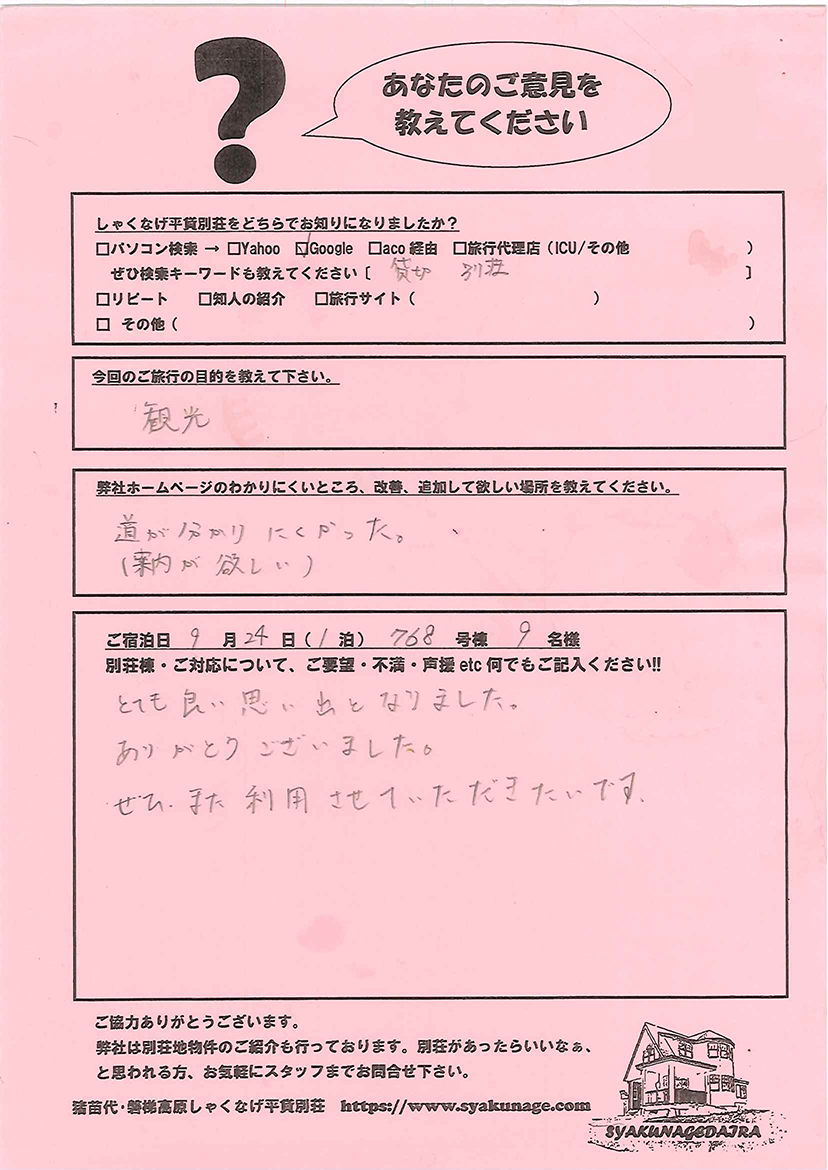 ?
あなたのご意見を
教えてください
しゃくなげ平貸別荘をどちらでお知りになりましたか？
□パソコン検索 → □Yahoo ☑Google □aco経由 □旅行代理店（ICU/その他 ）
ぜひ検索キーワードも教えてください［ 貸切 別荘 ］
□リピート □知人の紹介 □旅行サイト（ ）
□ その他（ ）
今回のご旅行の目的を教えて下さい。
観光
弊社ホームページのわかりにくいところ、改善、追加して欲しい場所を教えてください。
道が分かりにくかった。
(案内が欲しい)
ご宿泊日 9 月 24 日（1 泊） 768 号棟 9 名様
別荘棟・ご対応について、ご要望・不満・声援etc何でもご記入ください!!
とても良い思い出となりました。
ありがとうございました。
ぜひ、また利用させていただきたいです。
ご協力ありがとうございます。
弊社は別荘地物件のご紹介も行っております。別荘があったらいいなぁ、
と思われる方、お気軽にスタッフまでお問合せ下さい。
猪苗代・磐梯高原しゃくなげ平貸別荘 https://www.syakunage.com
SYAKUNAGEDAIRA